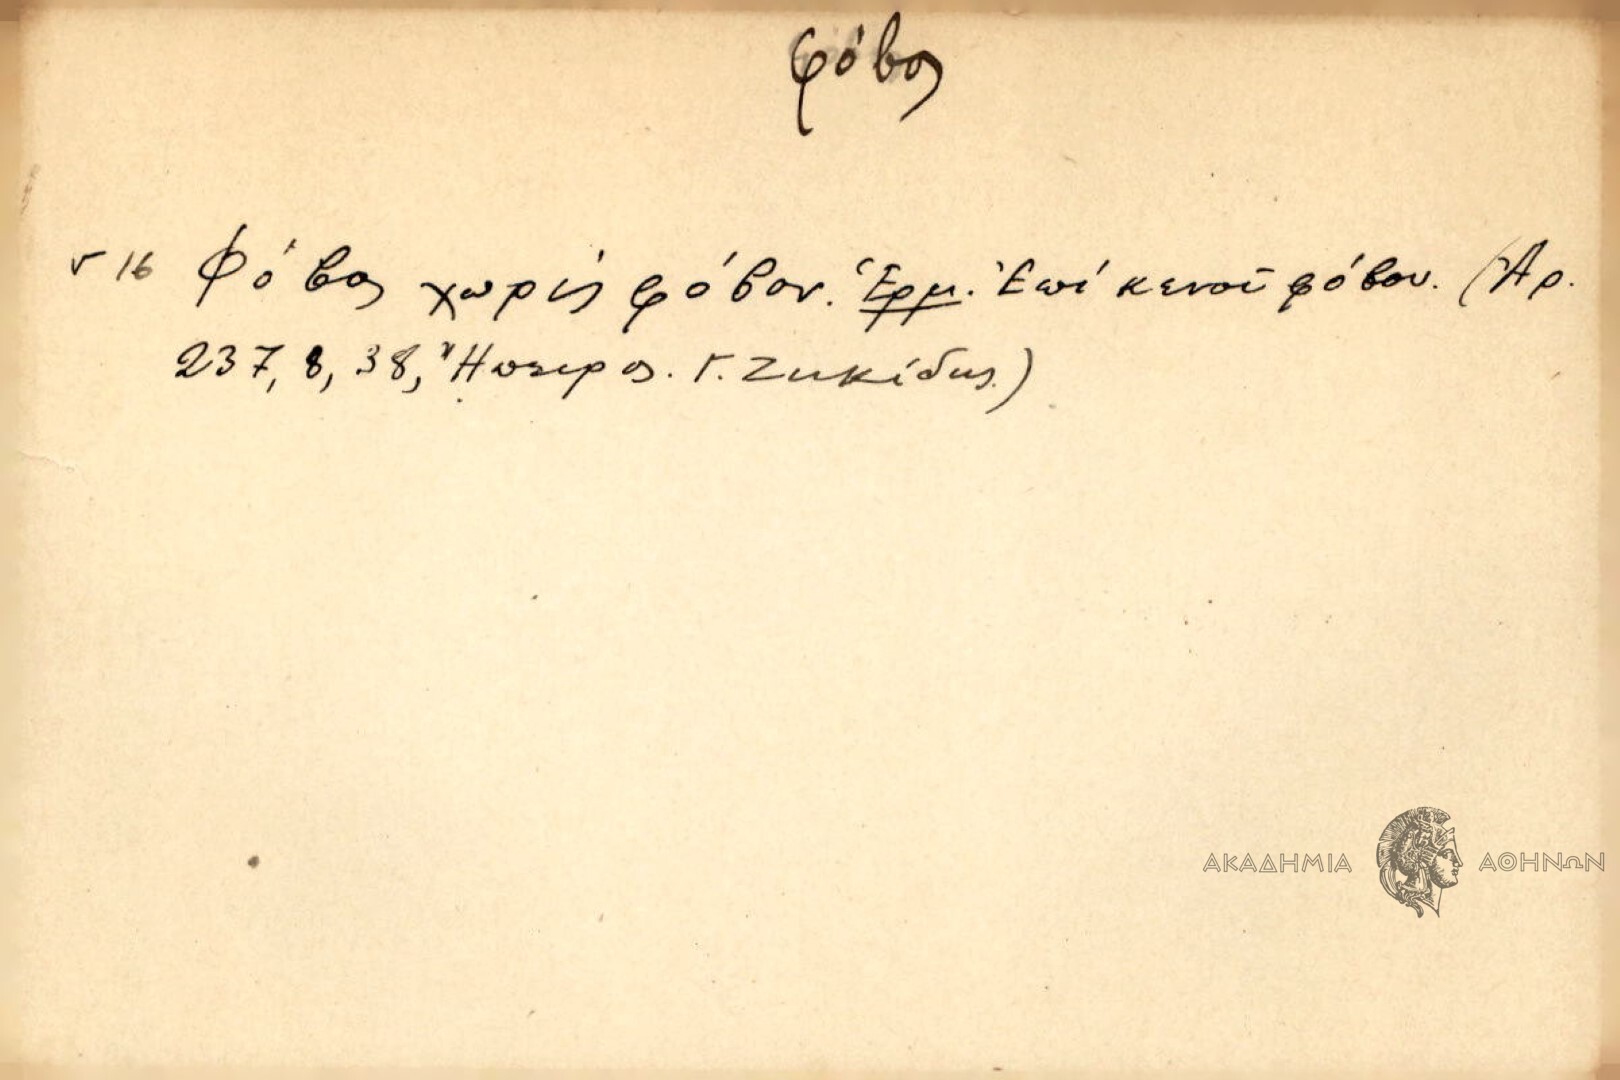 φόβος
16 Φόβος χωρὶς φόβον. Ἑρμ. Ἐπὶ κενοῦ φόβου. (Ἀρ.
237, 8, 38, Ἤπειρος. Γ. Ζηκίδης.)
ΑΚΑΔΗΜΙΑ ΑΘΗΝΩΝ